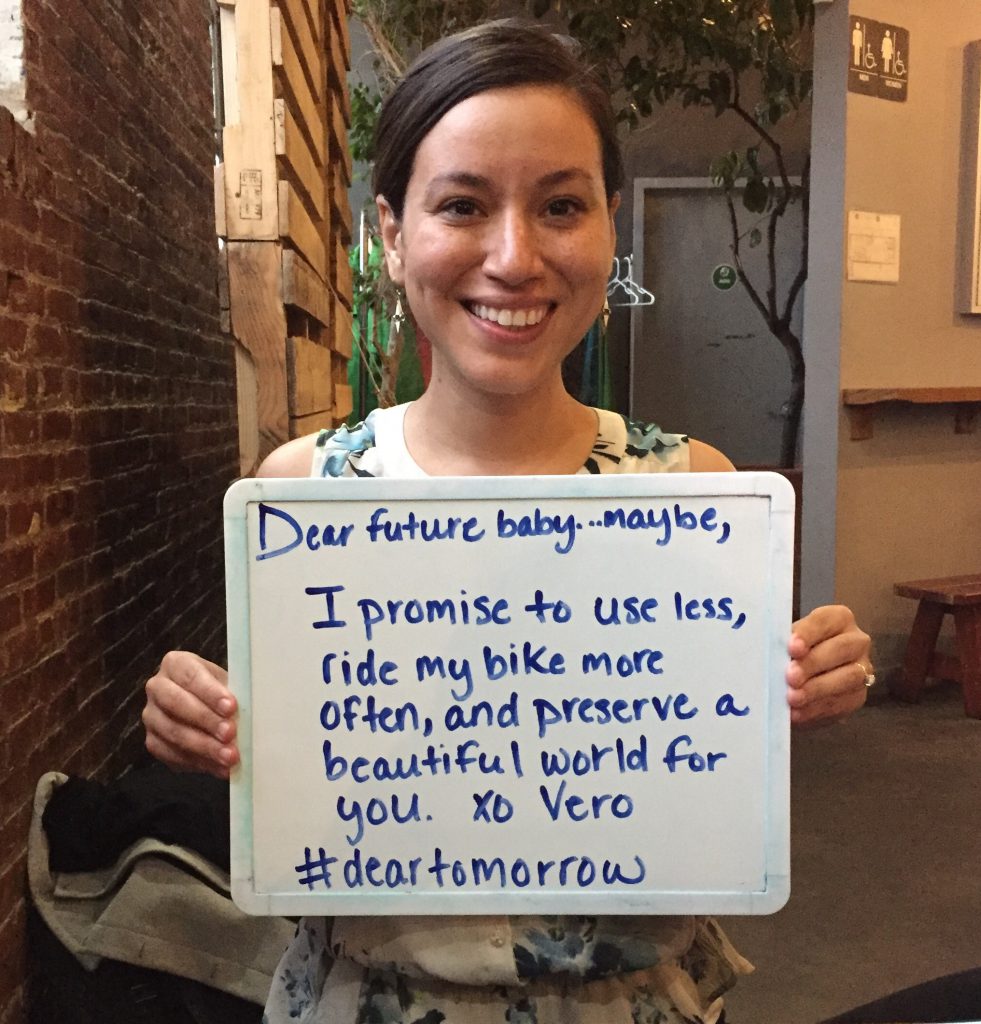 Dear future baby...maybe,
I promise to use less,
ride my bike more
often, and preserve a
beautiful world for
you. xo Vero
#deartomorrow
MEN
WOMEN